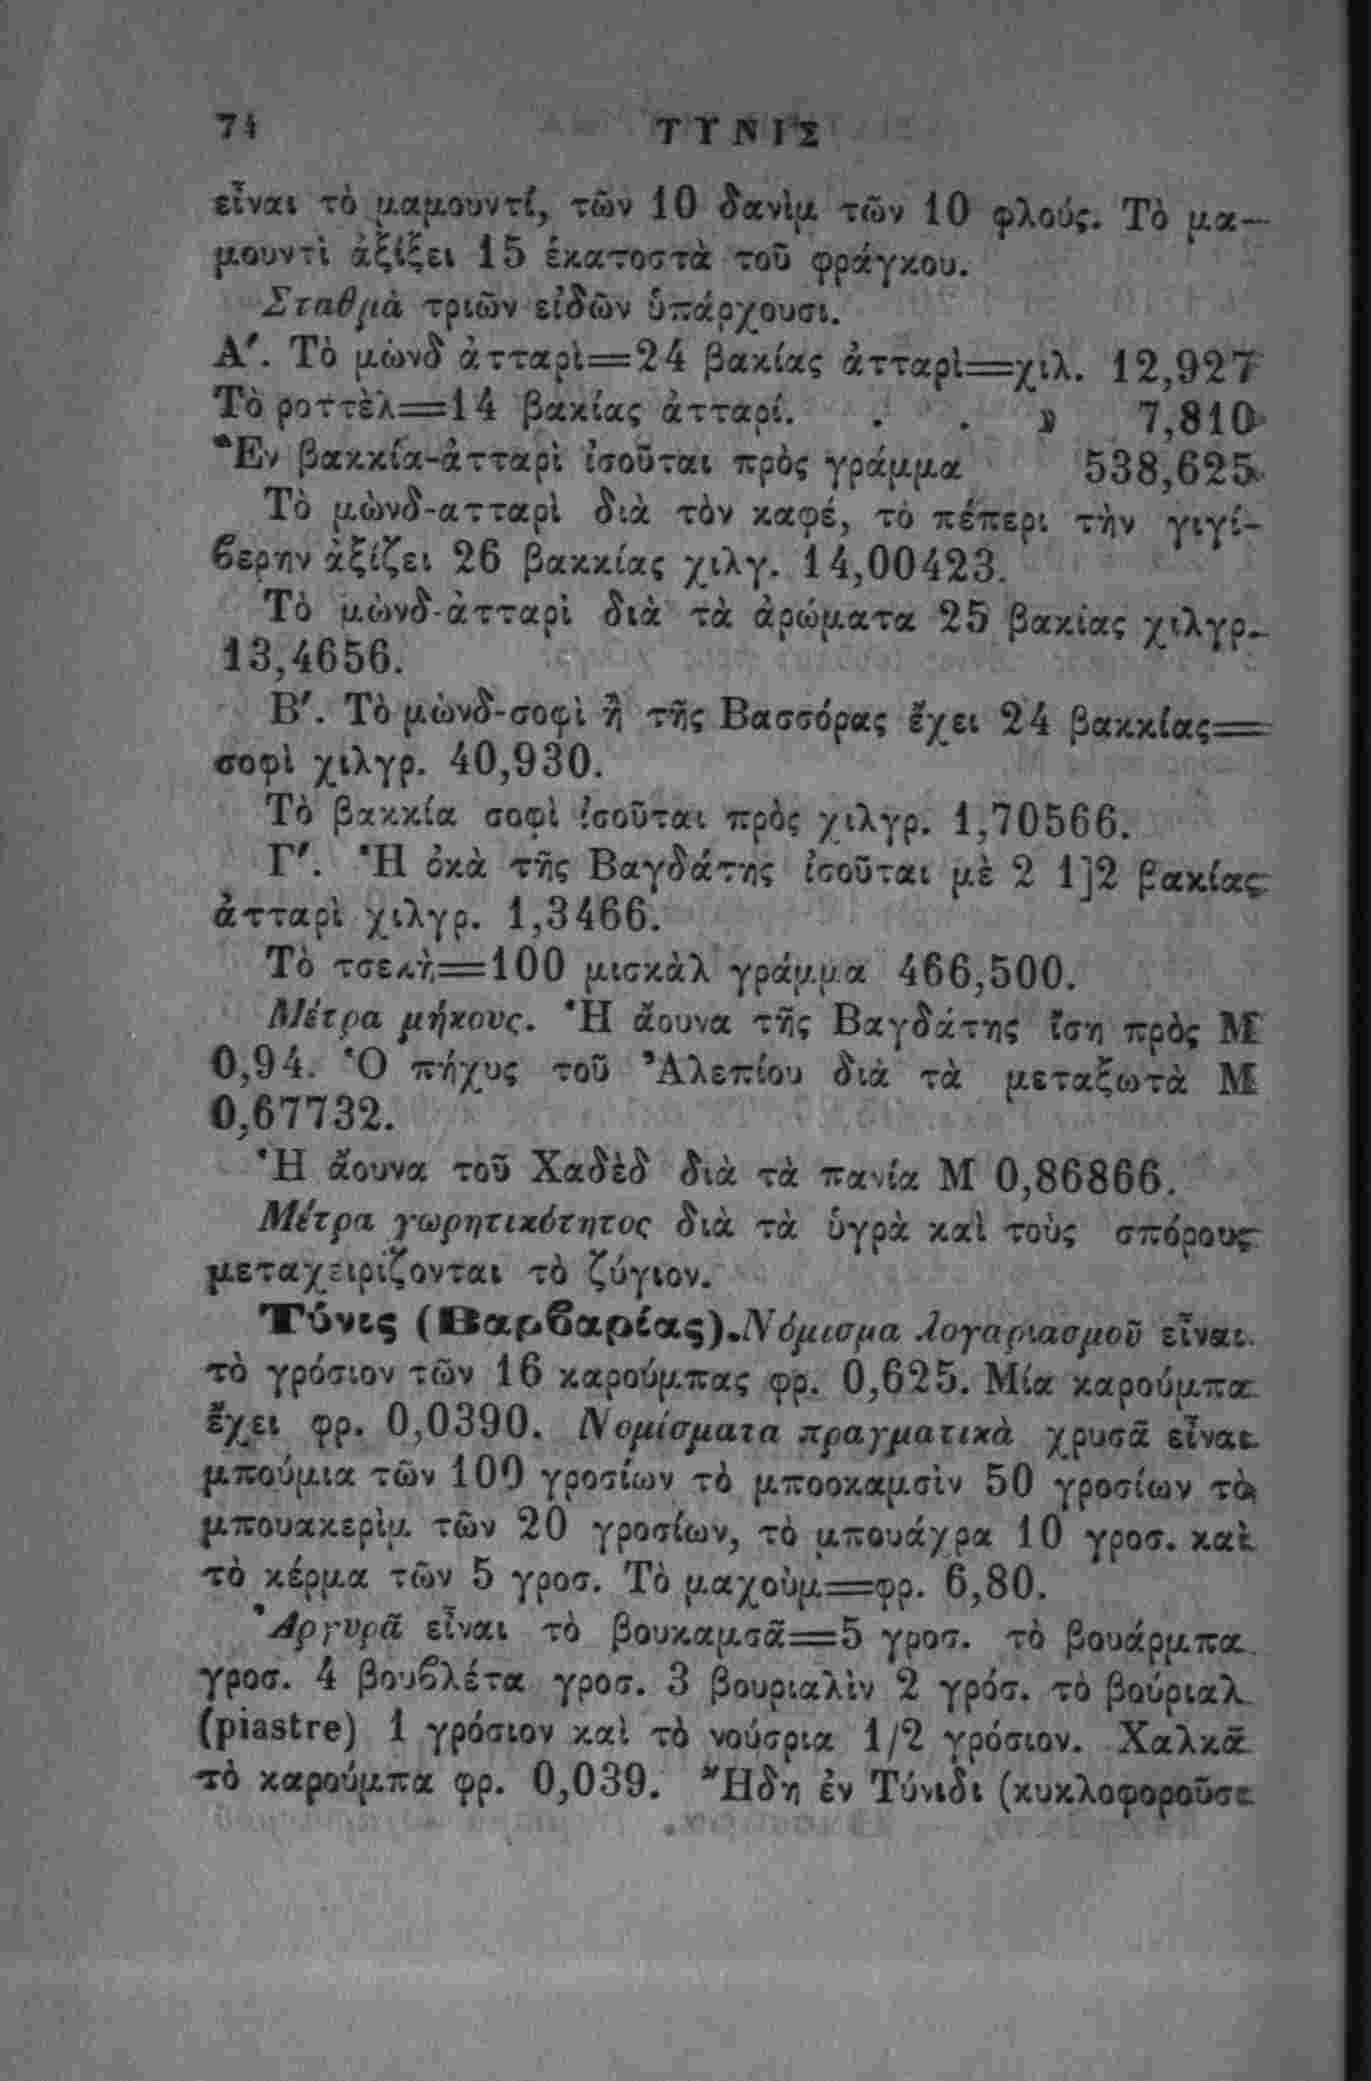 74 ΤΥΝΙΣ
εἶναι τὸ μαμουντί, τῶν 10 δανὶμ τῶν 10 φλούς. Τὸ μα—
μουντὶ ἀξίξει 15 ἑκατοστὰ τοῦ φράγκου.
Σταθμὰ τριῶν εἰδῶν ὑπάρχουσι.
Α′. Τὸ μὼνδ ἀτταρὶ=24 βακίας ἀτταρὶ=χιλ. 12,927
Τὸ ροττὲλ=14 βακίας ἀτταρί. . . » 7,810
Ἓν βακκία-ἀτταρὶ ἰσοῦται πρὸς γράμμα 538,625
Τὸ μὼνδ-ατταρὶ διὰ τὸν καφέ, τὸ πέπερι τὴν γιγί-
βερην ἀξίζει 26 βακκίας χιλγ. 14,00423.
Τὸ μὼνδ-ἀτταρὶ διὰ τὰ ἀρώματα 25 βακίας χιλγρ.
13,4656.
Β′. Τὸ μὼνδ-σοφὶ ἢ τῆς Βασσόρας ἔχει 24 βακκίας=
σοφὶ χιλγρ. 40,930.
Τὸ βακκία σοφὶ ἰσοῦται πρὸς χιλγρ. 1,70566.
Γ′. Ἡ ὀκὰ τῆς Βαγδάτης ἰσοῦται μὲ 2 1]2 βακίας
ἀτταρὶ χιλγρ. 1,3466.
Τὸ τσεκὴ=100 μισκὰλ γράμμα 466,500.
Μέτρα μήκους. Ἡ ἄουνα τῆς Βαγδάτης ἴση πρὸς Μ
0,94. Ὁ πήχυς τοῦ Ἀλεπίου διὰ τὰ μεταξωτὰ Μ
0,67732.
Ἡ ἄουνα τοῦ Χαδὲδ διὰ τὰ πανία Μ 0,86866.
Μέτρα χωρητικότητος διὰ τὰ ὑγρὰ καὶ τοὺς σπόρους
μεταχειρίζονται τὸ ζύγιον.
Τύνις (Βαρβαρίας). Νόμισμα λογαριασμοῦ εἶναι
τὸ γρόσιον τῶν 16 καρούμπας φρ. 0,625. Μία καρούμπα
ἔχει φρ. 0,0390. Νομίσματα πραγματικὰ χρυσᾶ εἶναι
μπούμια τῶν 100 γροσίων τὸ μποοκαμσὶν 50 γροσίων τὸ
μπουακερὶμ τῶν 20 γροσίων, τὸ μπουάχρα 10 γροσ. καὶ
τὸ κέρμα τῶν 5 γροσ. Τὸ μαχοὺμ=φρ. 6,80.
Ἀργυρᾶ εἶναι τὸ βουκαμσᾶ=5 γροσ. τὸ βουάρμπα
γροσ. 4 βουβλέτα γροσ. 3 βουριαλὶν 2 γρόσ. τὸ βούριαλ
(piastre) 1 γρόσιον καὶ τὸ νούσρια 1/2 γρόσιον. Χαλκᾶ
τὸ καρούμπα φρ. 0,039. Ἤδη ἐν Τύνιδι (κυκλοφοροῦσι